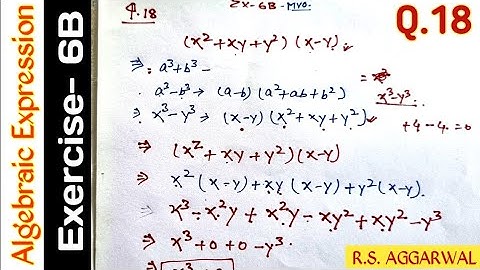 Algebraic Expression
Exercise- 6B
Q.18
Ex-6B-
Q.18
(x²+xy+y²) (x-y)
⇒ a³+b³-
a³-b³ → (a-b) (a²+ab+b²)
⇒ x³-y³ → (x-y) (x²+xy+y²)
x³-y³
+4-4=0
⇒ (x²+xy+y²) (x-y)
⇒ x²(x-y)+xy(x-y)+y²(x-y)
⇒ x³-x²y+x²y-xy²+xy²-y³
⇒ x³+0+0-y³
R.S. AGGARWAL